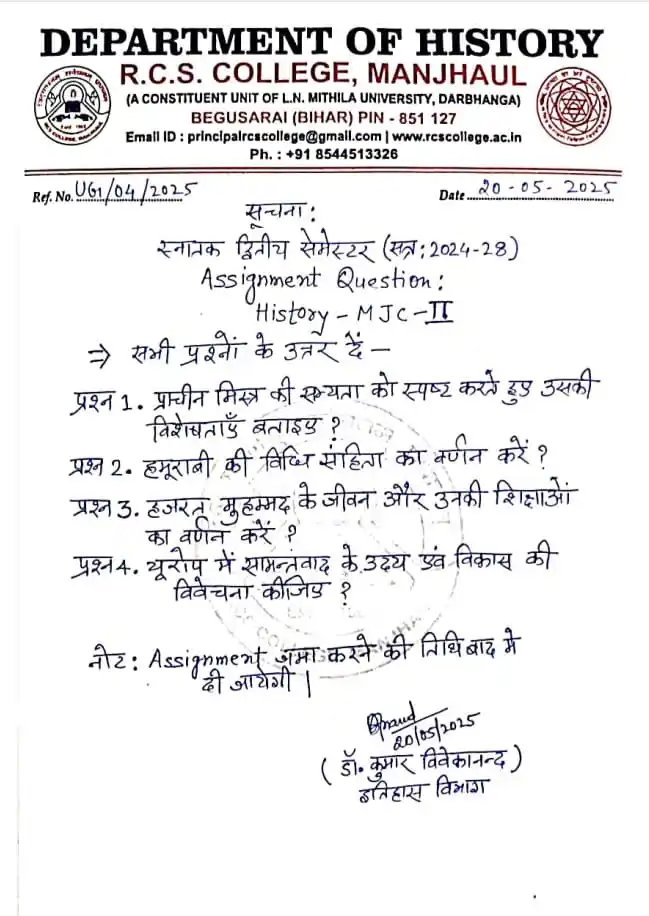 DEPARTMENT OF HISTORY
R.C.S. COLLEGE, MANJHAUL
(A CONSTITUENT UNIT OF L.N. MITHILA UNIVERSITY, DARBHANGA)
BEGUSARAI (BIHAR) PIN - 851 127
Email ID : principalrcscollege@gmail.com | www.rcscollege.ac.in
Ph. : +91 8544513326
Ref. No. UG1/04/2025 Date 20-05-2025
सूचना:
स्नातक द्वितीय सेमेस्टर (सत्र: 2024-28)
Assignment Question:
History - MJC - II
⇒ सभी प्रश्नों के उत्तर दें —
प्रश्न 1. प्राचीन मिस्त्र की सभ्यता को स्पष्ट करते हुए उसकी
विशेषताएँ बताइए ?
प्रश्न 2. हमूराबी की विधि संहिता का वर्णन करें ?
प्रश्न 3. हजरत मुहम्मद के जीवन और उनकी शिक्षाओं
का वर्णन करें ?
प्रश्न 4. यूरोप में सामन्तवाद के उदय एवं विकास की
विवेचना कीजिए ?
नोट: Assignment जमा करने की तिथि बाद में
दी जायेगी |
20/05/2025
(डॉ. कुमार विवेकानन्द)
इतिहास विभाग